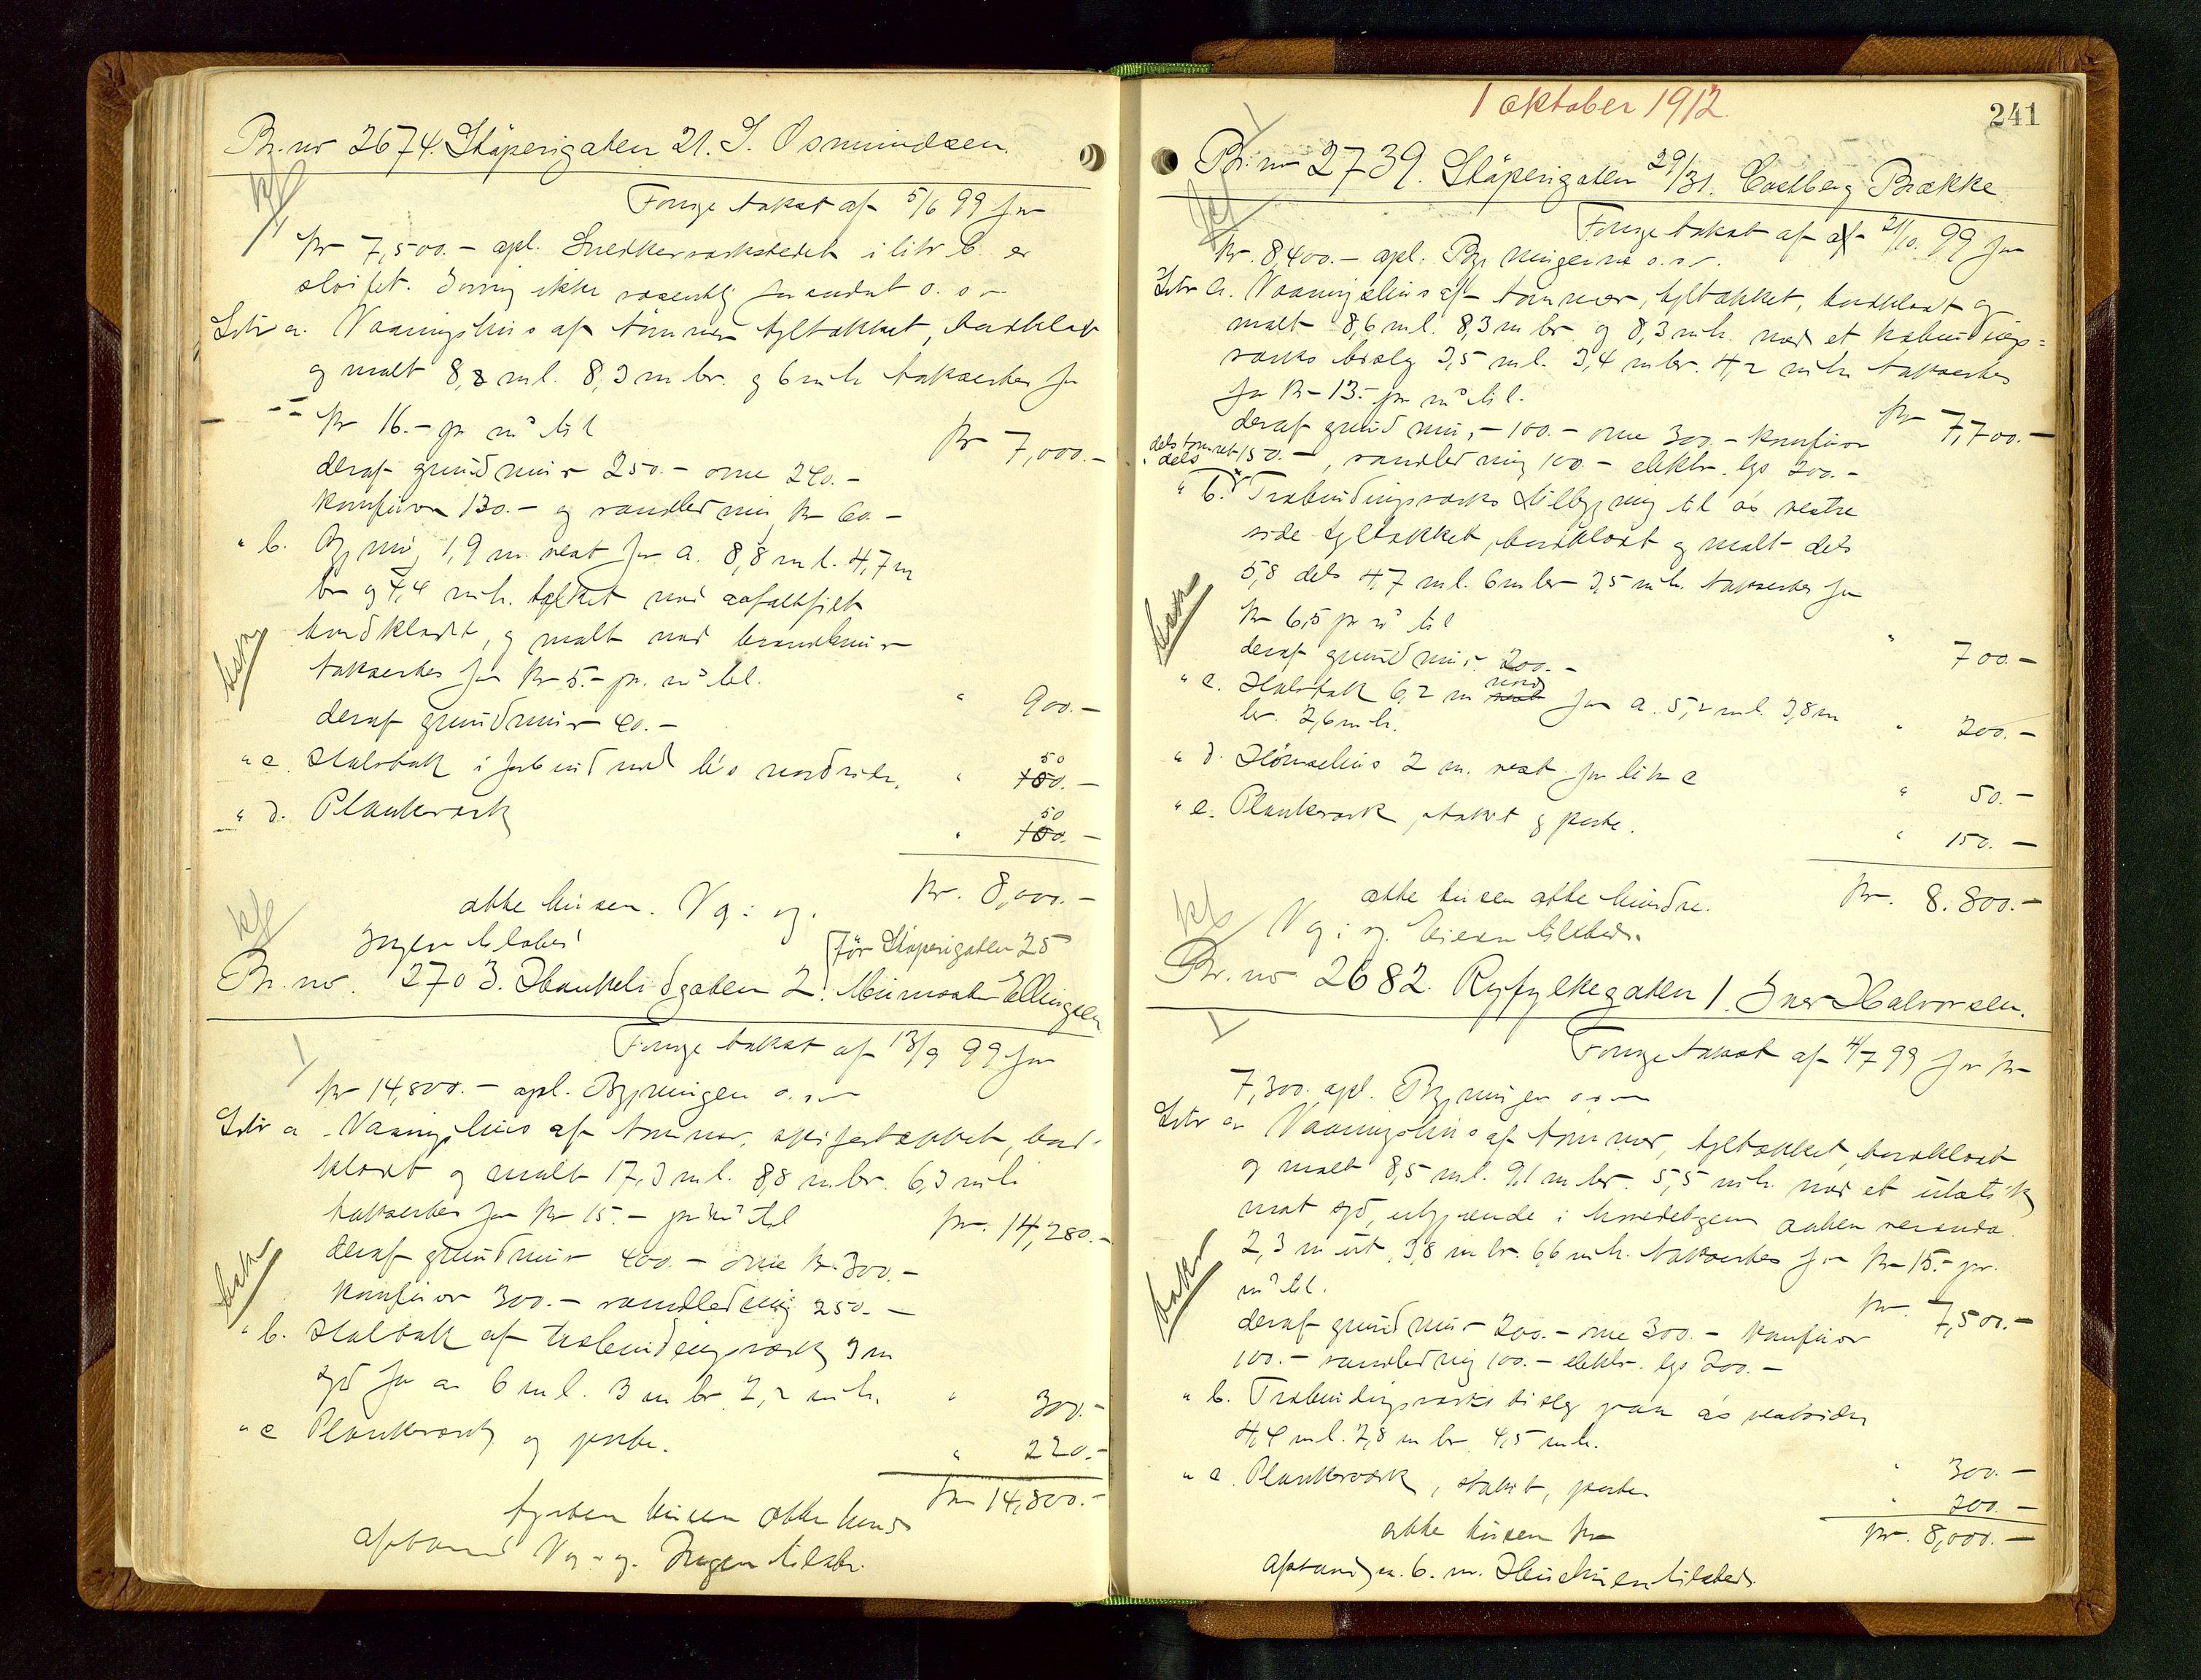 Br. no 2674. Støperigaten 21. I. Osmundsen.
Forrige takst af 5/6 99 for
kr 7,500.- opl. Snedkerverkstedet i litr b. er
sløifet. Øvrig ikke væsentlig forandret o. s. v.
Litr a. Vaaningshus af tømmer tgltækket, bordklædt
og malt 8,8 m l. 8,3 m br. og 6 m h. takseertes for
kr 16.- pr m³ til kr 7,000.-
deraf grundmur 250.- ovne 240.-
komfurer 130.- og vandledning kr 60.-
" b. Bygning 1,9 m. vest for a. 8,8 m l. 4,7 m
br og 4,4 m h. tækket med asfaltfilt
bordklædt, og malt med brandmur
takseertes for kr 5.- pr. m³ til. " 900.-
deraf grundmur 40.-
" c. Halvtak i forbind med b's nordside. " 50
100.-
" d. Plankeverk " 50
100.-
kr. 8,000.-
otte tusen. V g: og.
Ingen tilstede
[før Støperigaten 25
Br. no. 2703. Haukeligaten 2. Murmester Ellingsen
Forrige takst af 13/9 99 for
kr 14,800.- opl. Bygningen o. s. v
Litr a. Vaaningshus af tømmer, skifertækket, bord-
klædt og malt 17,3 m l. 8,8 m br. 6,3 m h.
takseertes for kr 15.- pr m³ til kr. 14,280.-
deraf grundmur 400.- ovne kr 300.-
komfurer 300.- vandledning 250.-
" b. Halvtak af træbindingsverk 3 m
syd for a 6 m l. 3 m br 2,2 m h. " 300.-
" c Plankeverk og porte. " 220.-
kr 14,800.-
fjorten tusen otte hund
afstand V g: og. Ingen tilstede.
1 oktober 1912.
241
Br. no 2739. Støperigaten 29/31. Castberg Brække
Forrige takst af af 21/10. 99 for
kr. 8,400.- opl. Bygningerne o. s. v.
Litr a. Vaaningshus af tømmer, tgltækket, bordklædt og
malt 8,6 m l. 8,3 m br. og 8,3 m h. med et træbindings=
verks bislag 3,5 m l. 3,4 m br. 4,2 m h. takseertes
for kr 13.- pr m³ til. kr 7,700.-
deraf grundmur,- 100.- ovne 300.- komfurer
150.-, vandledning 100.- elektr. lys 200.-
dels tømret
dels
" b. Træbindingsverks tilbygning til a's vestre
side tgltækket, bordklædt og malt dels
5,8 dels 4,7 m l. 6 m br 3,5 m h. takseertes for
kr 6,5 pr m³ til " 700.-
deraf grundmur 200.-
" c. Halvtak 6,2 m nord vest for a. 5,2 m l. 3,8 m
br. 2,6 m h. " 200.-
" d. Hønsehus 2 m. vest for litr c " 50.-
" e. Plankeverk, stakit og porte. " 150.-
kr. 8.800.-
otte tusen otte hundre.
V g: og. Eieren tilstede.
Br. no 2682. Ryfylkegaten 1. Iver Halvorsen.
Forrige takst af 4/7 99 for kr
7,300. opl. Bygningen o s v
Litr a. Vaaningshus af tømmer, tgltækket, bordklædt
og malt 8,5 m l. 9,1 m br. 5,5 m h. med et utstik
mot syd, utgjørende i hovedetagen aaben veranda
2,3 m ut 3,8 m br. 6,6 m h. takseertes for kr 15.- pr.
m³ til. kr. 7,500.-
deraf grundmur 200.- ovne 300.- komfurer
100.- vandledning 100.- elektr. lys 200.-
" b. Træbindingsverks bislag paa a's vestside
4,4 m l. 2,8 m br. 4,5 m h. " 300.-
" c. Plankeverk, stakit, porte " 200.-
kr. 8,000.-
otte tusen kr
afstand a. 6. m. Hustruen tilstede.